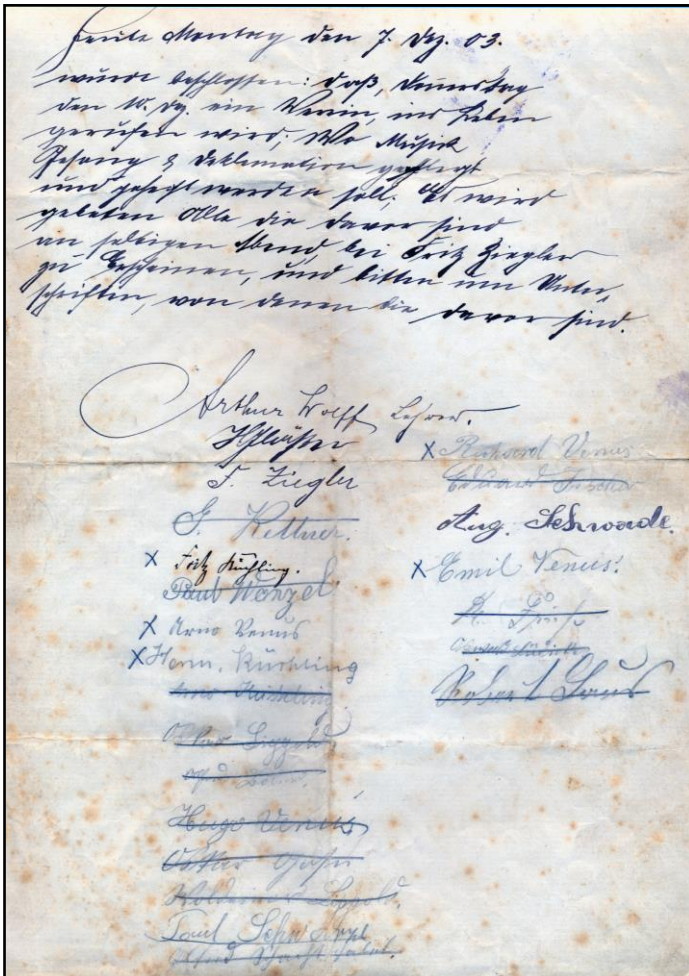 Heute Montag den 7. Dez. 03.
wurde beschlossen: daß, Donnerstag
den 10. Dez. ein Verein, ins Leben
gerufen wird; Wo Musik
Gesang & Deklamation gepflegt
und gehegt werden soll; Es wird
gebeten Alle die davor sind
an selbigen Abend bei Fritz Ziegler
zu Erscheinen, und bitten um Unter,
schriften, von denen die davor sind.
Arthur Wolff Lehrer.
F. Ziegler
G. Kettner.
X Fritz Küchling.
Paul Wenzel
X Arno Venus
X Herm. Küchling
Arno Küchling
Hugo Venus
Oskar
Woldemar Lippold.
Paul
Alfred
X Richard Venus
Eduard Fischer
Aug. Schwade.
X Emil Venus.
Robert